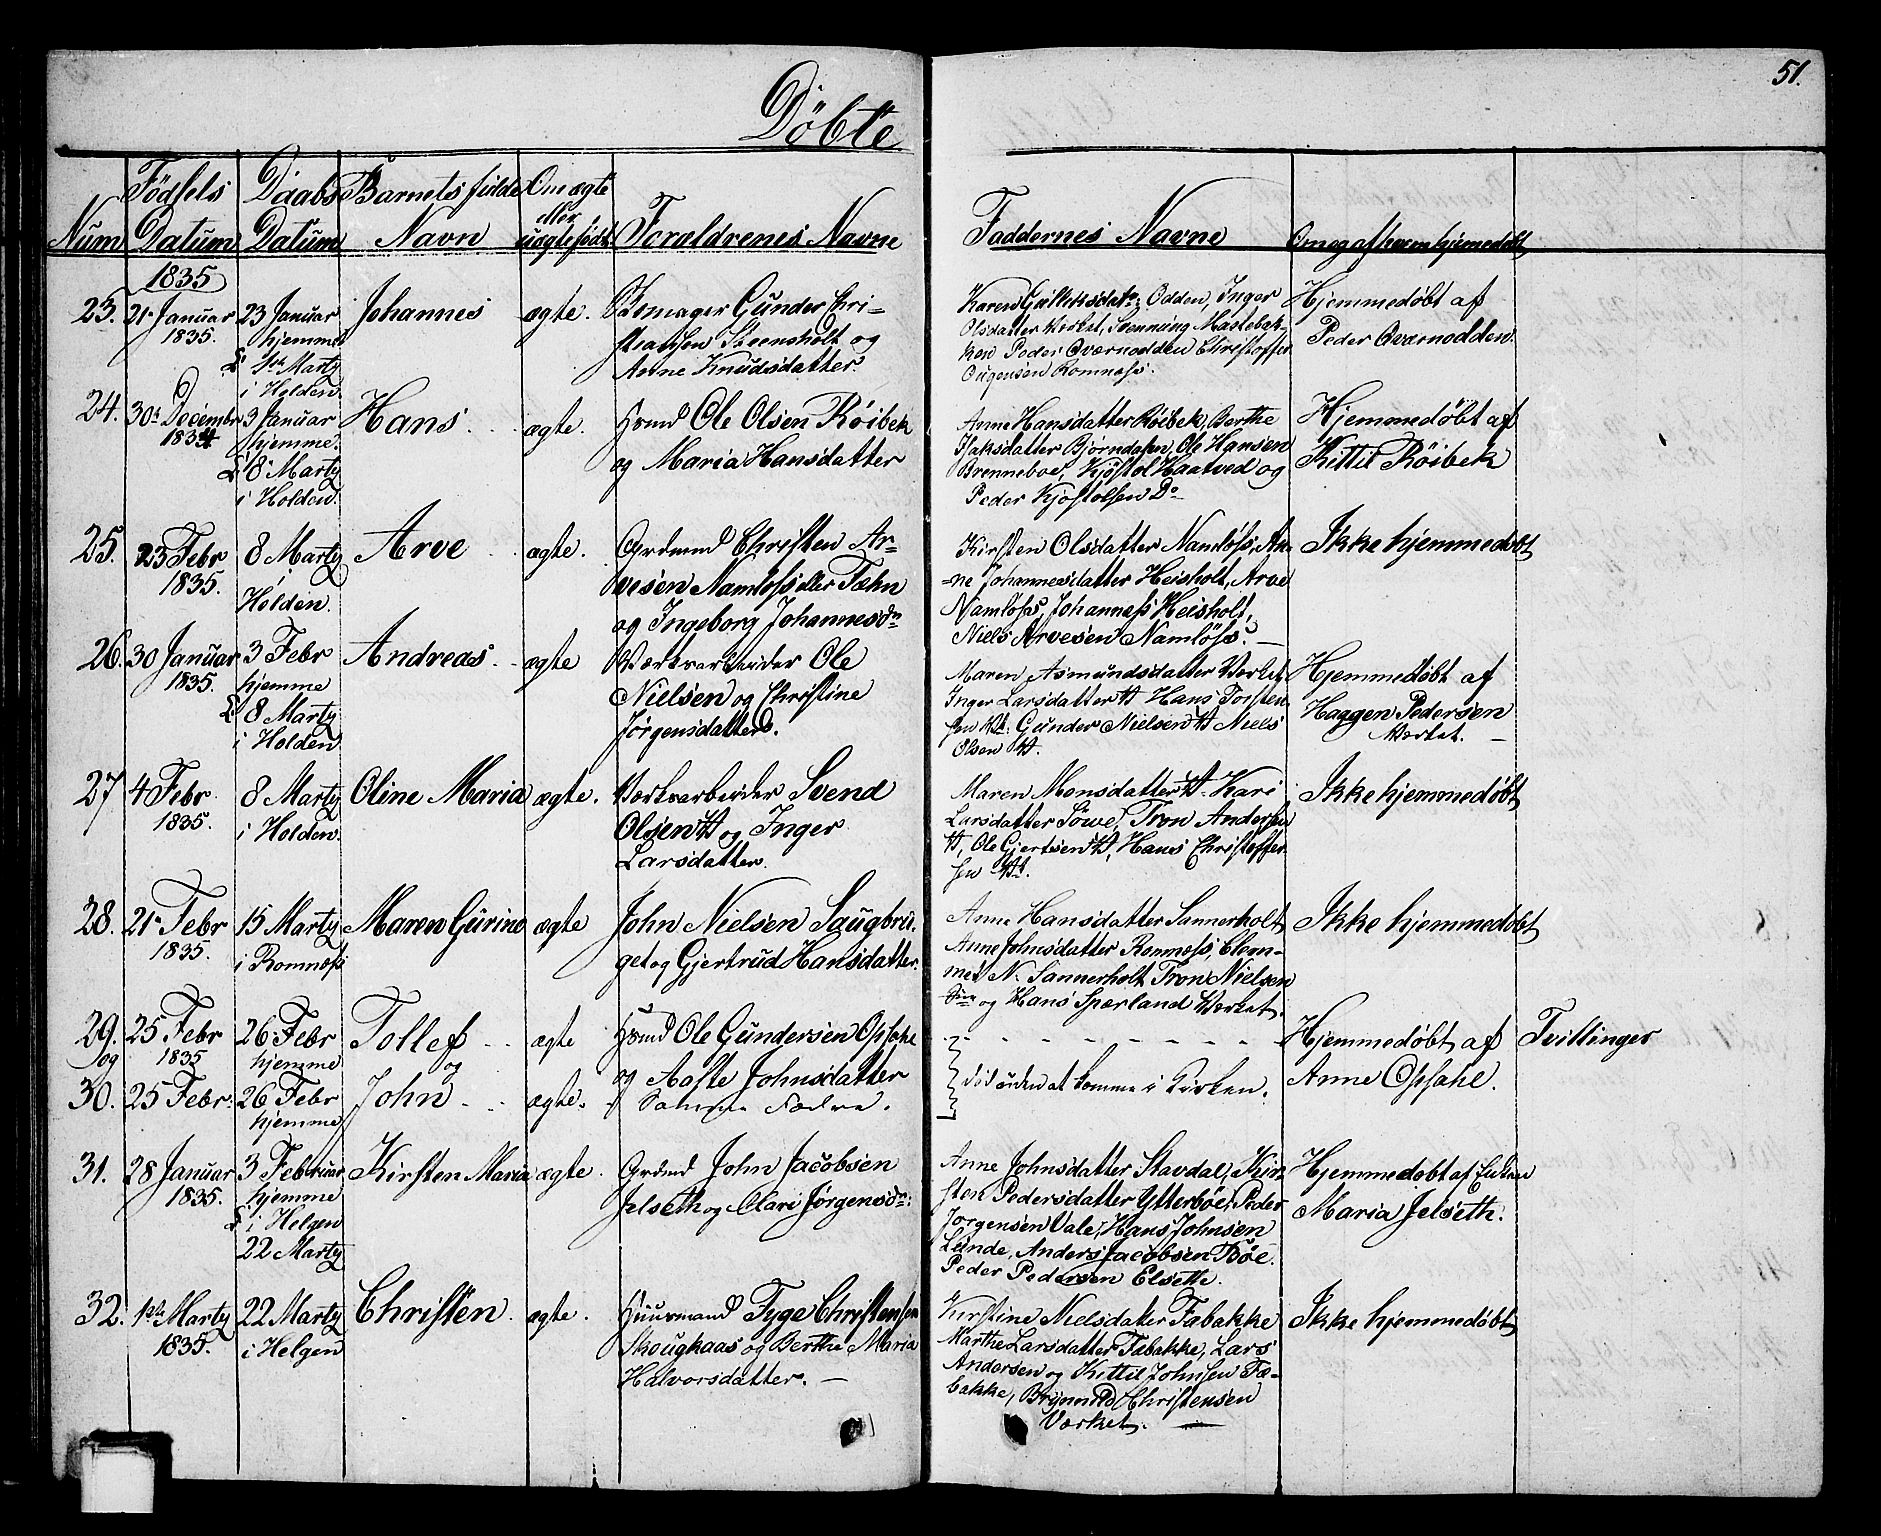 51.
Döbte
Num
Födsels Datum
Daabs Datum
Barnets fulde Navn
Om ægte eller uægte födt
Forældrenes Navne
Faddernes Navne
Om og af hvem hjemmedöbt
1835
23.
21 Januar
1835.
23 Januar
hjemme
& 1ste Marty
i Holden.
Johannes
ægte.
Skomager Gunder Chri-
stiansen Steensholt og
Anne Knudsdatter.
Karen Gulleksdatr: Odden, Inger
Olsdatter Verket, Svenning Mastebak-
ken Peder Qværnodden Christoffer
Ougensen Romnæss.
Hjemmedöbt af
Peder Qværnodden.
24.
30te Decembr
1834
3 Januar
hjemme.
& 8 Marty
i Holden.
Hans
ægte.
Huusmd Ole Olsen Röibek
og Maria Hansdatter
Anne Hansdatter Röibek, Berthe
Isaksdatter Björndalen, Ole Hansen
Brenneboe, Kjöstol Haatved og
Peder Kjöstolsen Do
Hjemmedöbt af
Kittil Röibek
25.
23 Febr
1835.
8 Marty
i
Holden.
Arve
ægte.
Grdmand Christen Ar-
vesen Namlöss eller Tæhn
og Ingeborg Johannesdr
Kirsten Olsdatter Namlöss, An-
ne Johannesdatter Heisholt, Arve
Namlöss, Johannes Heisholt,
Niels Arvesen Namlöss. —
Ikke hjemmedöbt
26.
30 Januar
1835.
3 Febr
hjemme
& 8 Marty
i Holden
Andreas
ægte
Værksarbeider Ole
Nielsen og Christine
Jörgensdatter.
Maren Asmundsdatter Verket
Inger Larsdatter V. Hans Torsten-
sen V. Gunder Nielsen V. Niels
Olsen V.
Hjemmedöbt af
Haagen Pedersen
Verket. —
27
4 Febr
1835.
8 Marty
i Holden.
Oline Maria
ægte.
Verksarbeider Svend
Olsen V. og Inger
Larsdatter.
Maren Monsdatter V. Kari
Larsdatter Söwe, Tron Andersen
V, Ole Gjertsen V, Hans Christoffer-
sen V.
Ikke hjemmedöbt
28.
21 Febr
1835.
15 Marty
i Romnæss
Maren Gurine
ægte
John Nielsen Saugbru-
get og Gjertrud Hansdatter.
Anne Hansdatter Sannerholt
Anne Johnsdatter Romnæss, Clem-
met N. Sannerholt Tron Nielsen
og Hans Sperland Verket.
Ikke hjemmedöbt
29.
og
25 Febr
1835
26 Febr
hjemme
Tollef
og
ægte
Huusmd Ole Gundersen Opsahl
og Aaste Johnsdatter
Hjemmedöbt af
Anne Opsahl.
Tvillinger
30.
25 Febr.
26 Febr
hjemme
John
ægte.
Samme Fædre.
död uden at komme i Kirken.
31.
28 Januar
1835.
3 Februar
hjemme
& i Helgen
22 Marty
Kirsten Maria
ægte.
Grdmd John Jacobsen
Jelseth og Clare Jörgensdr:
Anne Johnsdatter Stavdal, Kir-
sten Pedersdatter Ytterböe, Peder
Jörgensen Vale, Hans Johnsen
Lunde, Anders Jacobsen Böe.
Peder Pedersen Elseth.
Hjemmedöbt af
Maria Jelseth.
32.
1ste Marty
1835.
22 Marty
i Helgen
Christen
ægte.
Huusmand Tyge Christensen
Skoughaas og Berthe Maria
Halvorsdatter. —
Kirstine Nielsdatter Fabakke
Marthe Larsdatter Fabakke, Lars
Andersen og Kittil Johnsen Fa-
bakke, Brynnild Christensen
Værket. —
Ikke hjemmedöbt